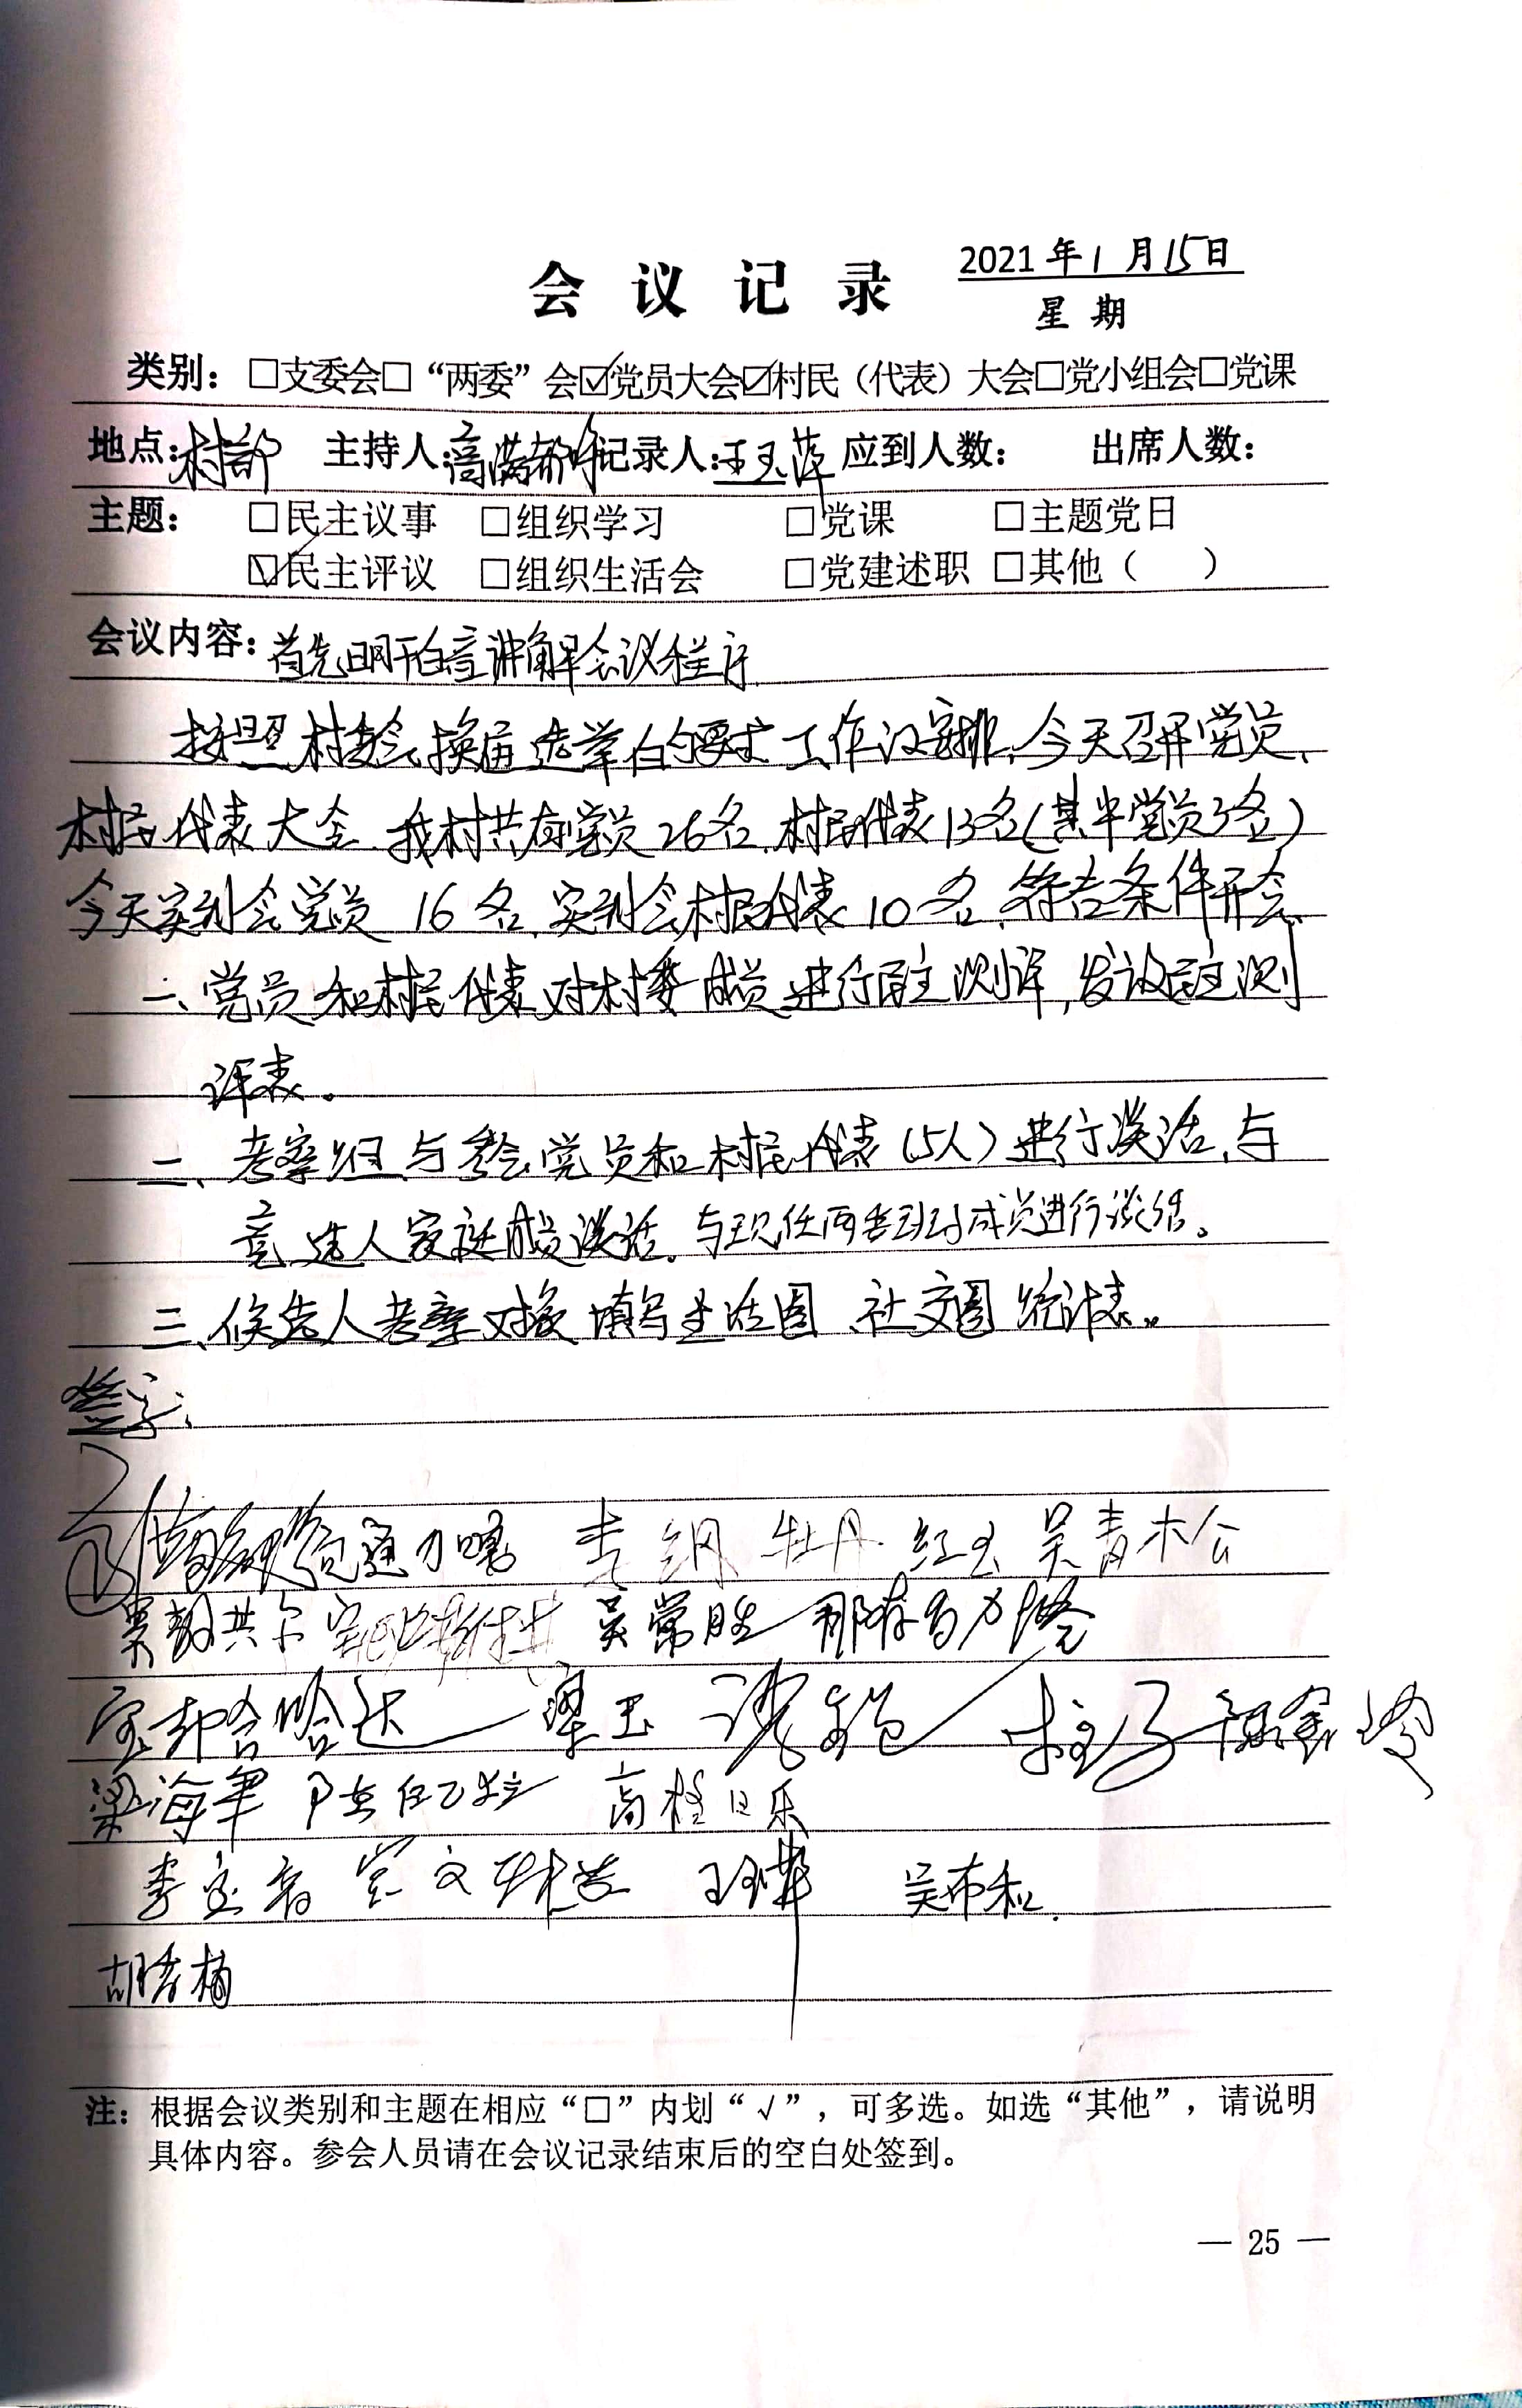 会议记录 2021年1月15日
星期
类别：☑支委会□“两委”会☑党员大会☑村民（代表）大会□党小组会□党课
地点：村部 主持人：高满都呼 记录人：王玉萍 应到人数： 出席人数：
主题： □民主议事 □组织学习 □党课 □主题党日
☑民主评议 □组织生活会 □党建述职 □其他（ ）
会议内容：首先白音讲解会议程序
按照村换届选举的要求工作安排，今天召开党员、
村民代表大会，我村共有党员26名，村民代表13名（其中党员3名）
今天实到会党员16名，实到会村民代表10名，符合条件开会。
一、党员和村民代表对村委成员进行民主测评，发放民主测
评表。
二、考察组与参会党员和村民代表（5人）进行谈话，与
竞选人家庭成员谈话，与现任两委班子成员进行谈话。
三、候选人考察对象填写生活圈、社交圈统计表。
签字：
青纲 牡丹 红玉 吴青木公
吴常胜 那存乌力
宝却哈达 梁玉 柱子
梁海军 高格日乐
李宝音 吴布和
胡香梅
注：根据会议类别和主题在相应“□”内划“√”，可多选。如选“其他”，请说明
具体内容。参会人员请在会议记录结束后的空白处签到。
— 25 —